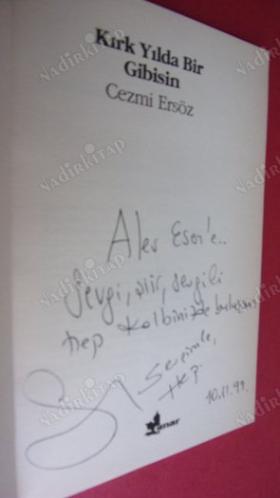 Kırk Yılda Bir
Gibisin
Cezmi Ersöz
Alev Esen'e..
Sevgi, şiir, sevgili
hep kalbinizde
Sevgimle,
Hep
10.11.99
çınar
NadirKitap